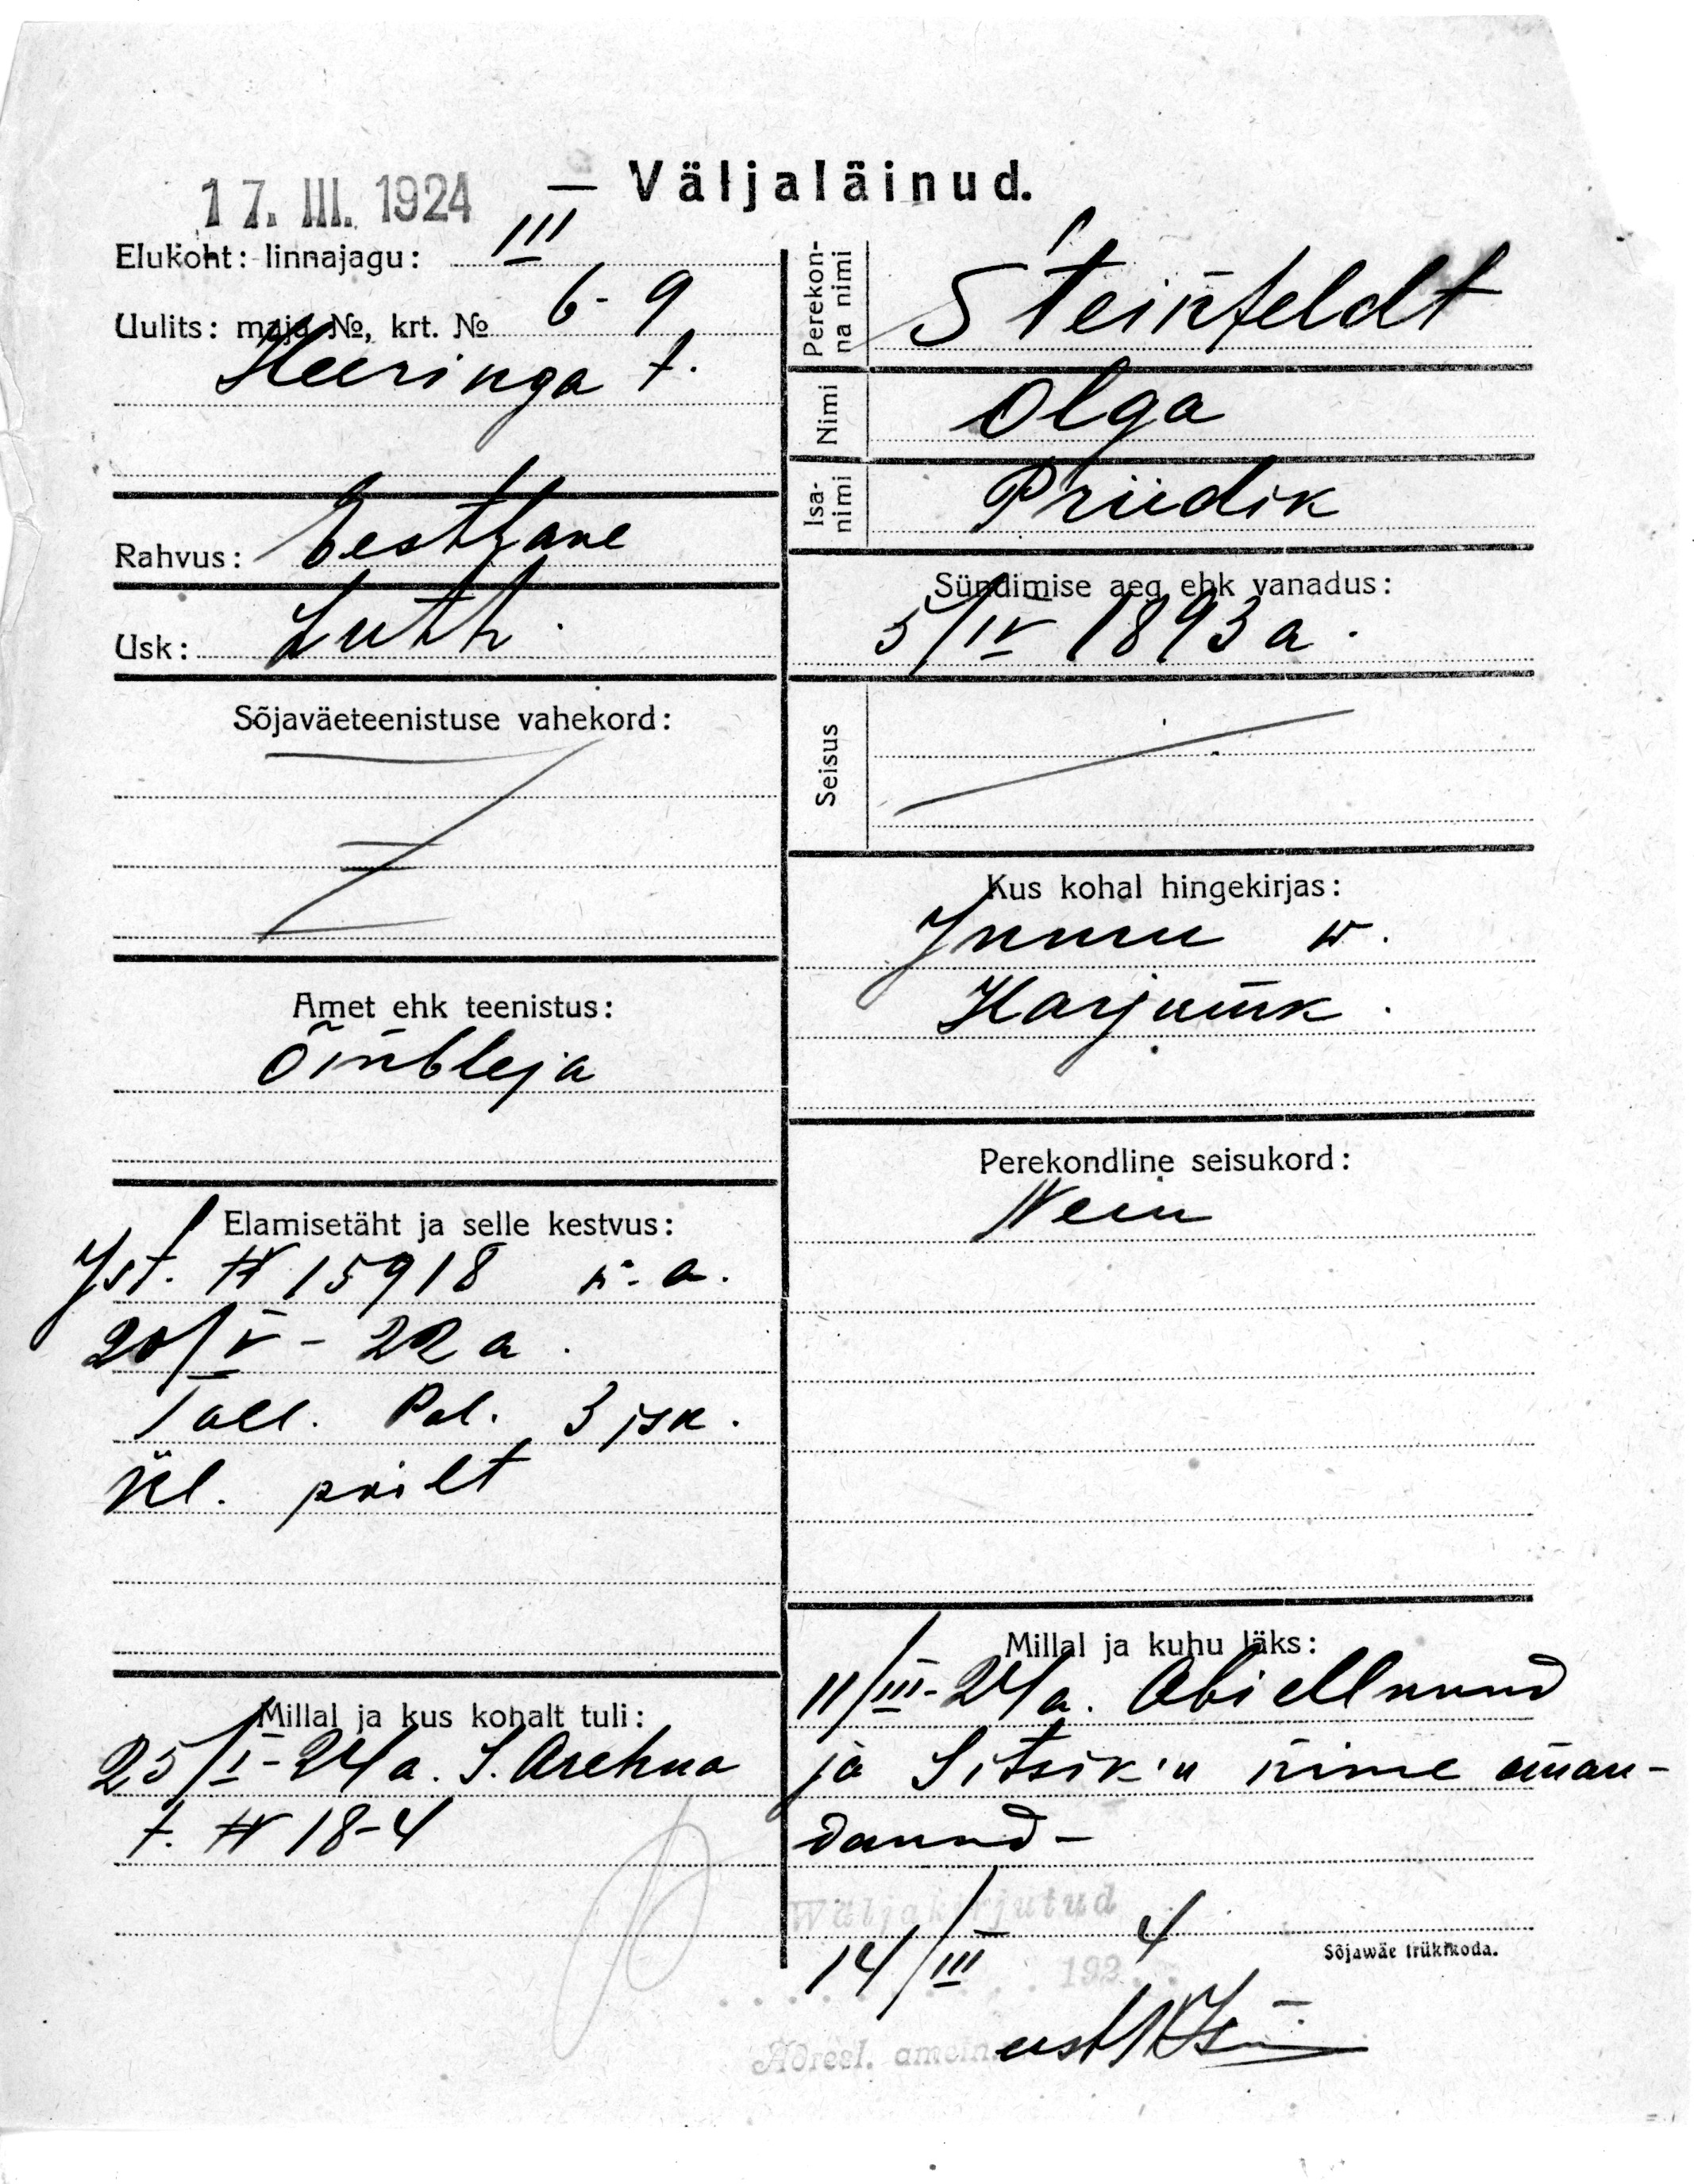 17. III. 1924 — Väljaläinud.
Elukoht: linnajagu: III
Uulits: maja №, krt. № 6-9
Heeringa t.
Rahvus: Eestlane
Usk: Luth.
Sõjaväeteenistuse vahekord:
Amet ehk teenistus:
Õmbleja
Elamisetäht ja selle kestvus:
Ist. № 15918 v. a.
20/V - 22 a.
Tall. Pol. 3 jsk.
ül. poolt
Millal ja kus kohalt tuli:
25/I - 24 a. S. Arehna
t. № 18-4
Perekonna nimi
Steinfeldt
Nimi
Olga
Isanimi
Priidik
Sündimise aeg ehk vanadus:
5/IV 1893 a.
Seisus
Kus kohal hingekirjas:
w.
Harjumk.
Perekondline seisukord:
Neiu
Millal ja kuhu läks:
11/III - 24 a. Abiellunud
ja Sitsik'u nime oman-
danud -
Wäljakirjutud
14/III 192 4
Sõjawäe trükikoda.
Adresl. ametn.